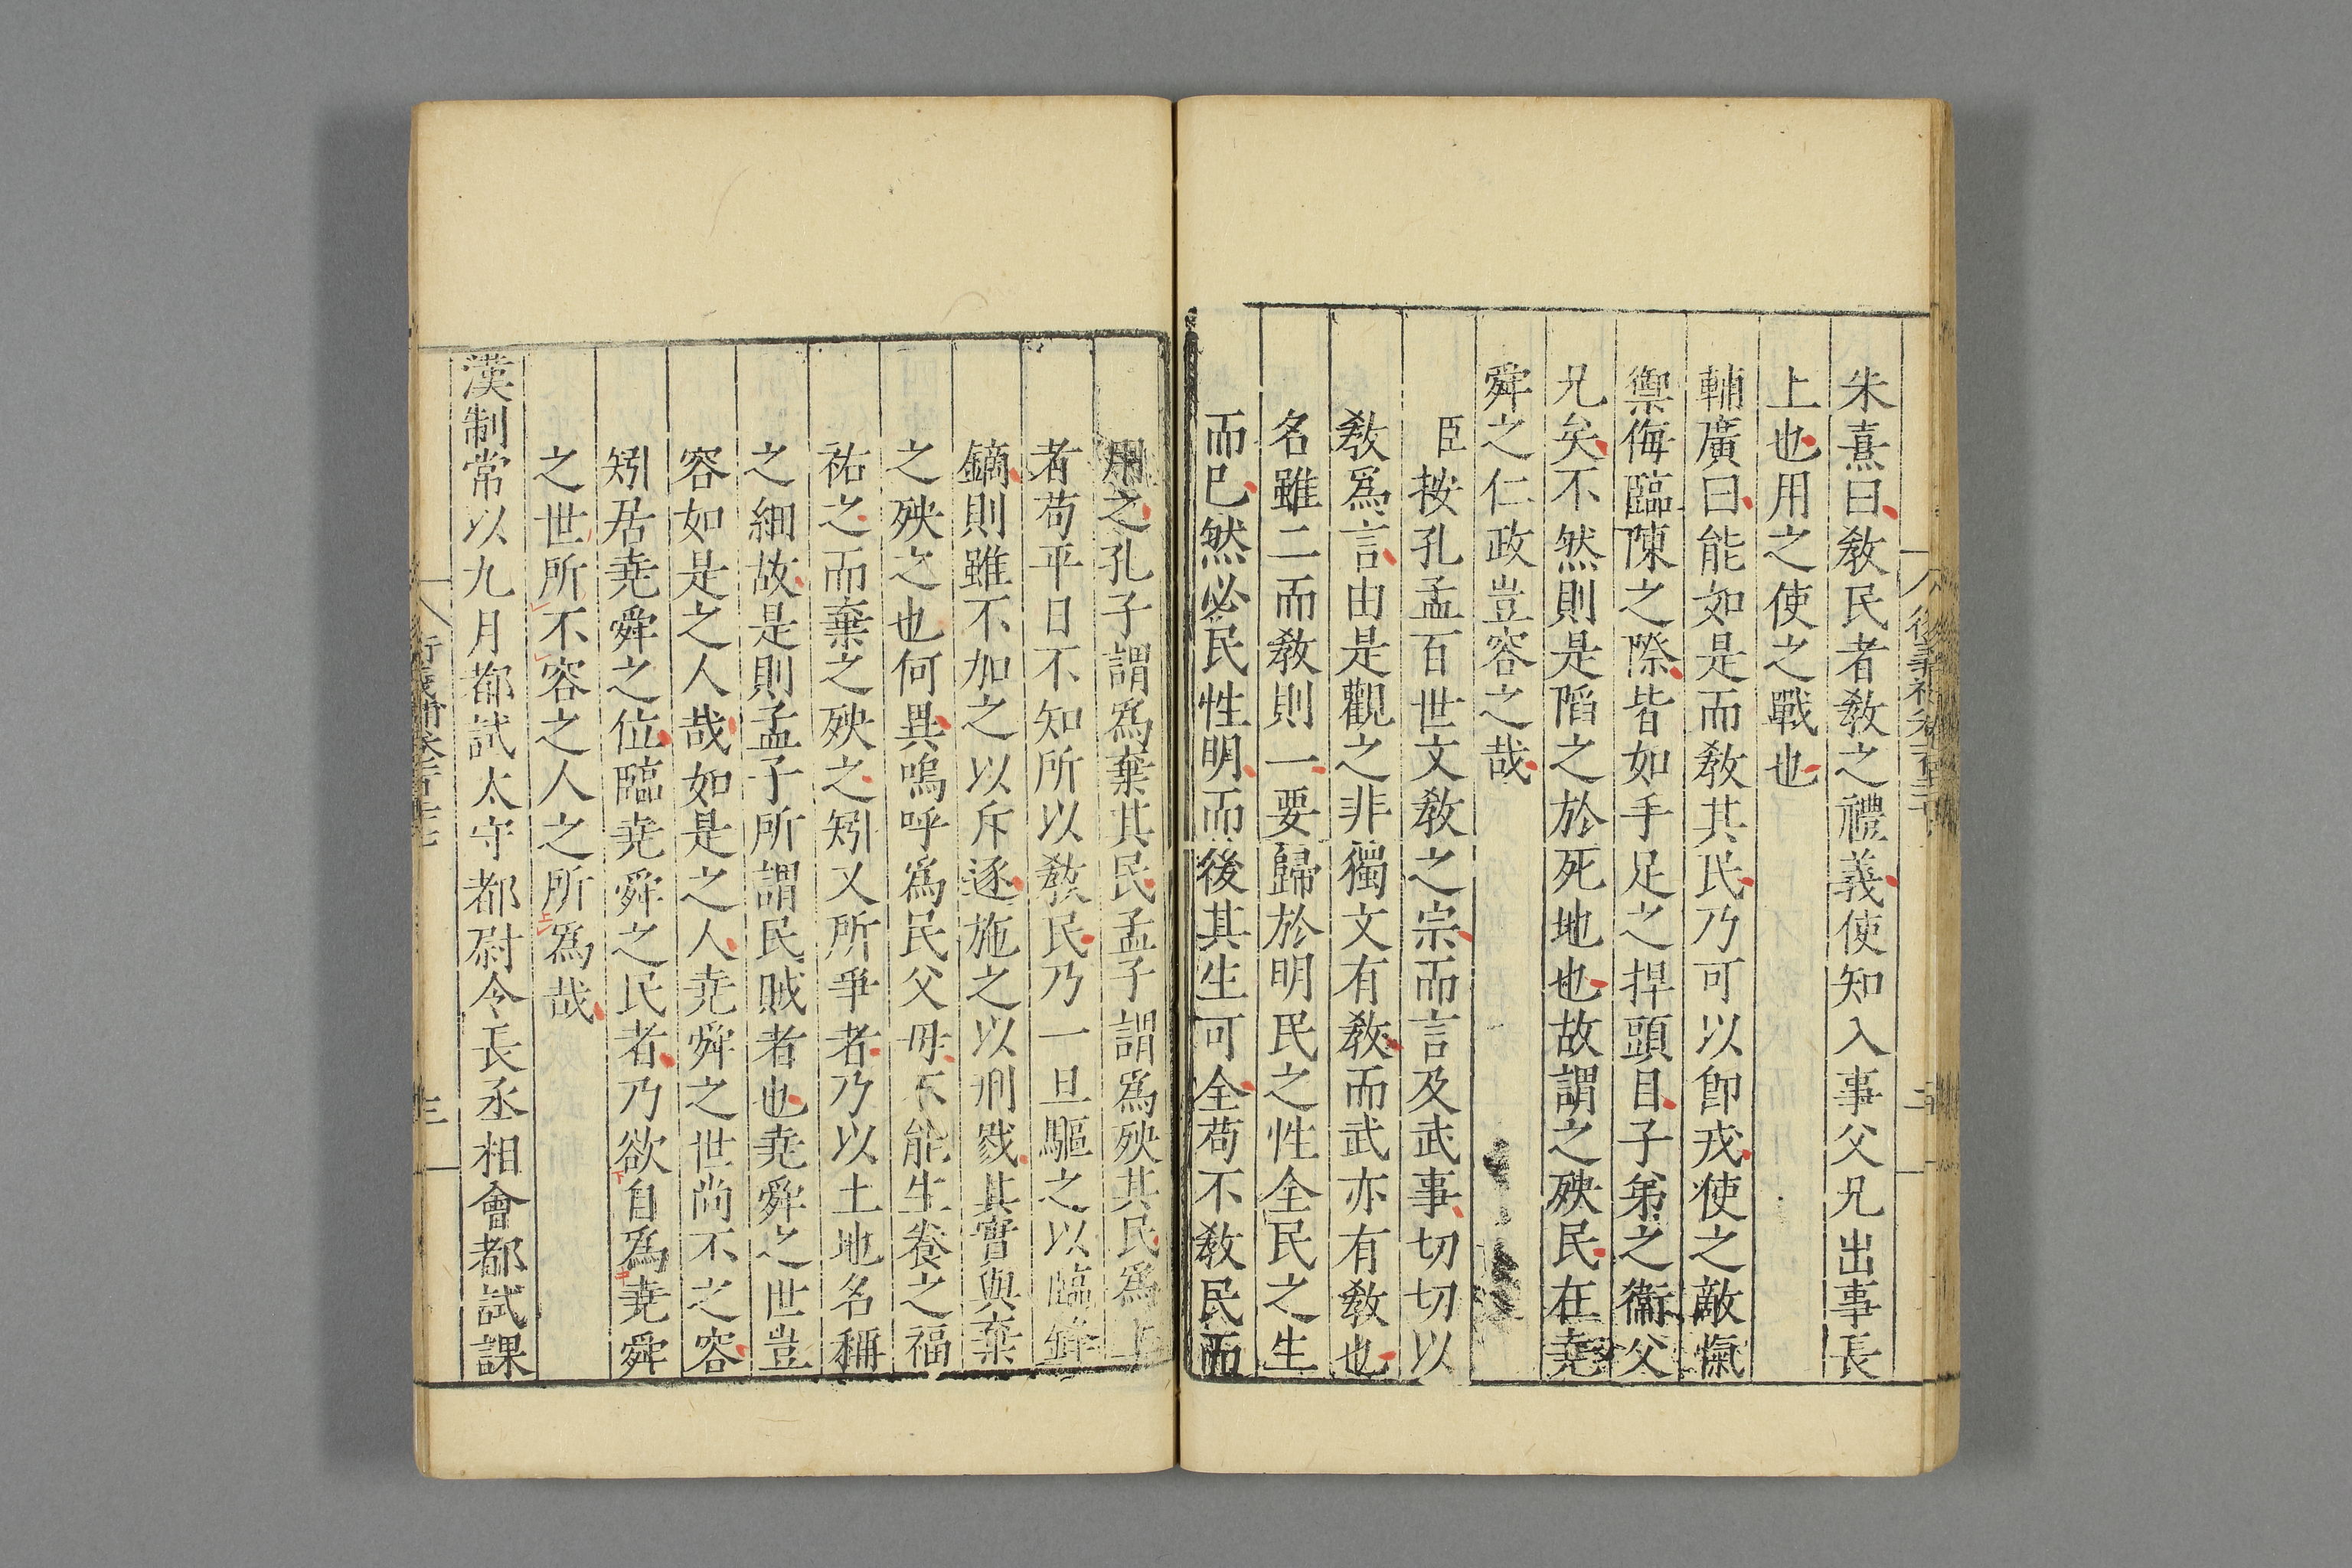 朱熹曰教民者教之禮義使知入事父兄出事長
上也用之使之戰也
輔廣曰能如是而教其民乃可以卽戎使之敵愾
禦侮臨陳之際皆如手足之捍頭目子弟之衞父
兄矣不然則是陷之於死地也故謂之殃民在堯
舜之仁政豈容之哉
臣按孔孟百世文教之宗而言及武事切切以
教爲言由是觀之非獨文有教而武亦有教也
名雖二而教則一要歸於明民之性全民之生
而已然必民性明而後其生可全苟不教民而
用之孔子謂爲棄其民孟子謂爲殃其民爲上
者苟平日不知所以教民乃一旦驅之以臨鋒
鏑則雖不加之以斥逐施之以刑戮其實與棄
之殃之也何異嗚呼爲民父母不能生養之福
祐之而棄之殃之矧又所爭者乃以土地名稱
之細故是則孟子所謂民賊者也堯舜之世豈
容如是之人哉如是之人堯舜之世尚不之容
矧居堯舜之位臨堯舜之民者乃欲自爲堯舜
之世所不容之人之所爲哉
漢制常以九月都試太守都尉令長丞相會都試課